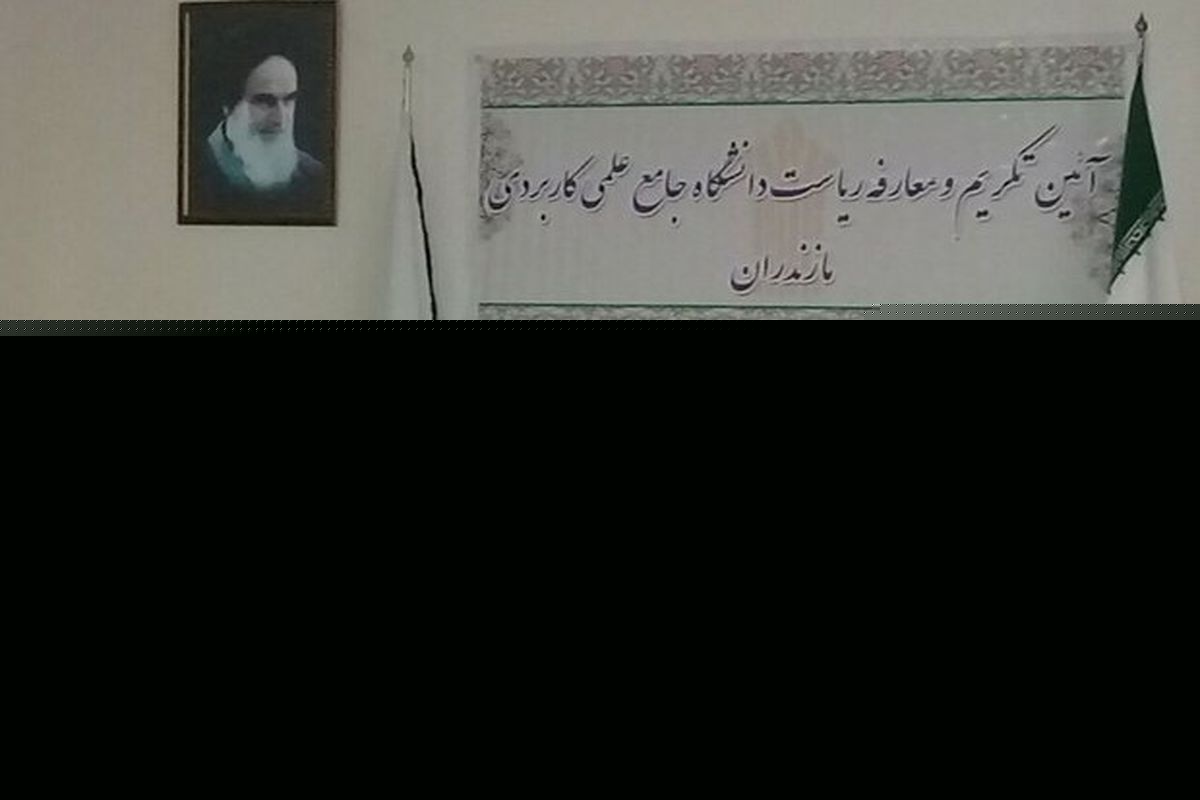 آئین تکریم و معارفه ریاست دانشگاه جامع علمی کاربردی
مازندران